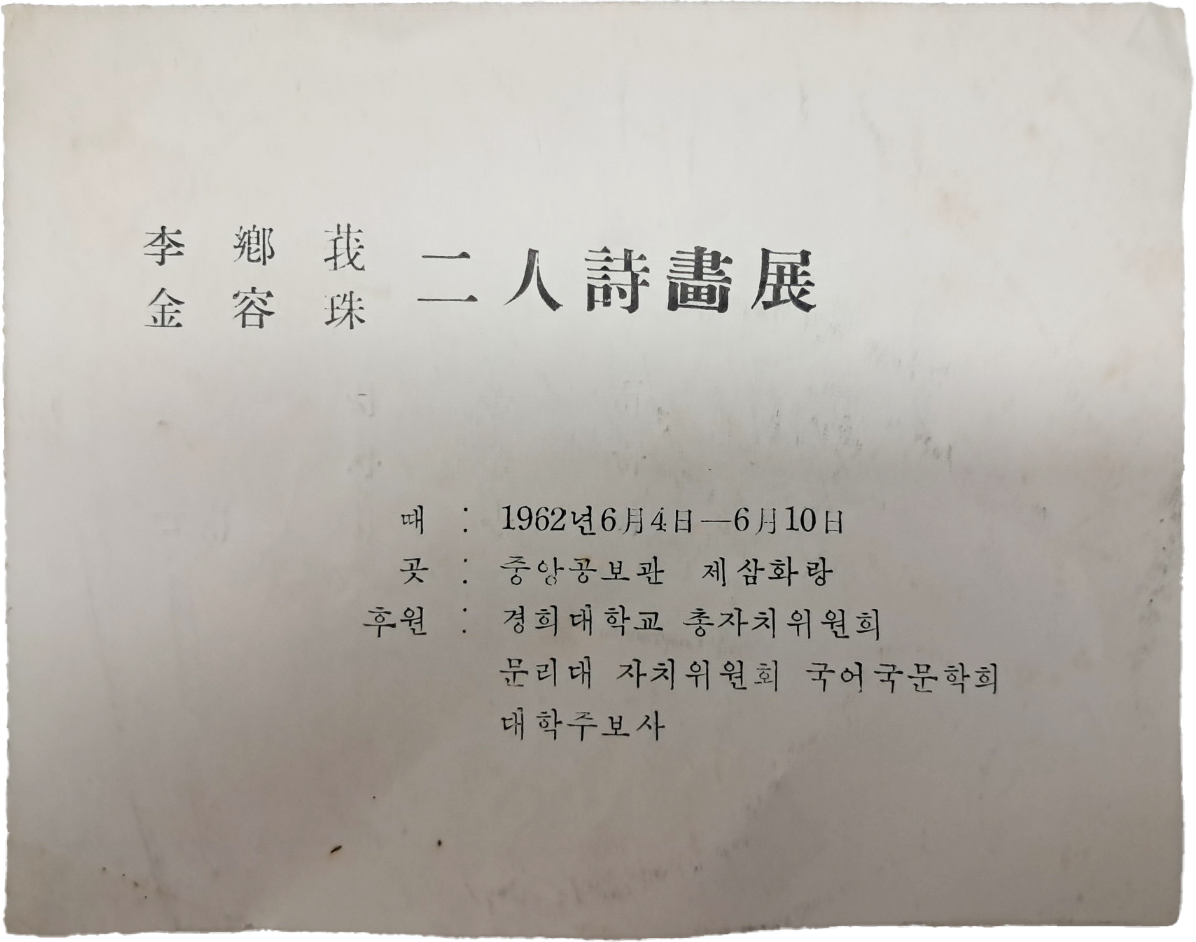 李鄕莪
金容珠
二人詩畵展
때 : 1962년 6月 4日—6月 10日
곳 : 중앙공보관 제삼화랑
후원 : 경희대학교 총자치위원회
문리대 자치위원회 국어국문학회
대학주보사